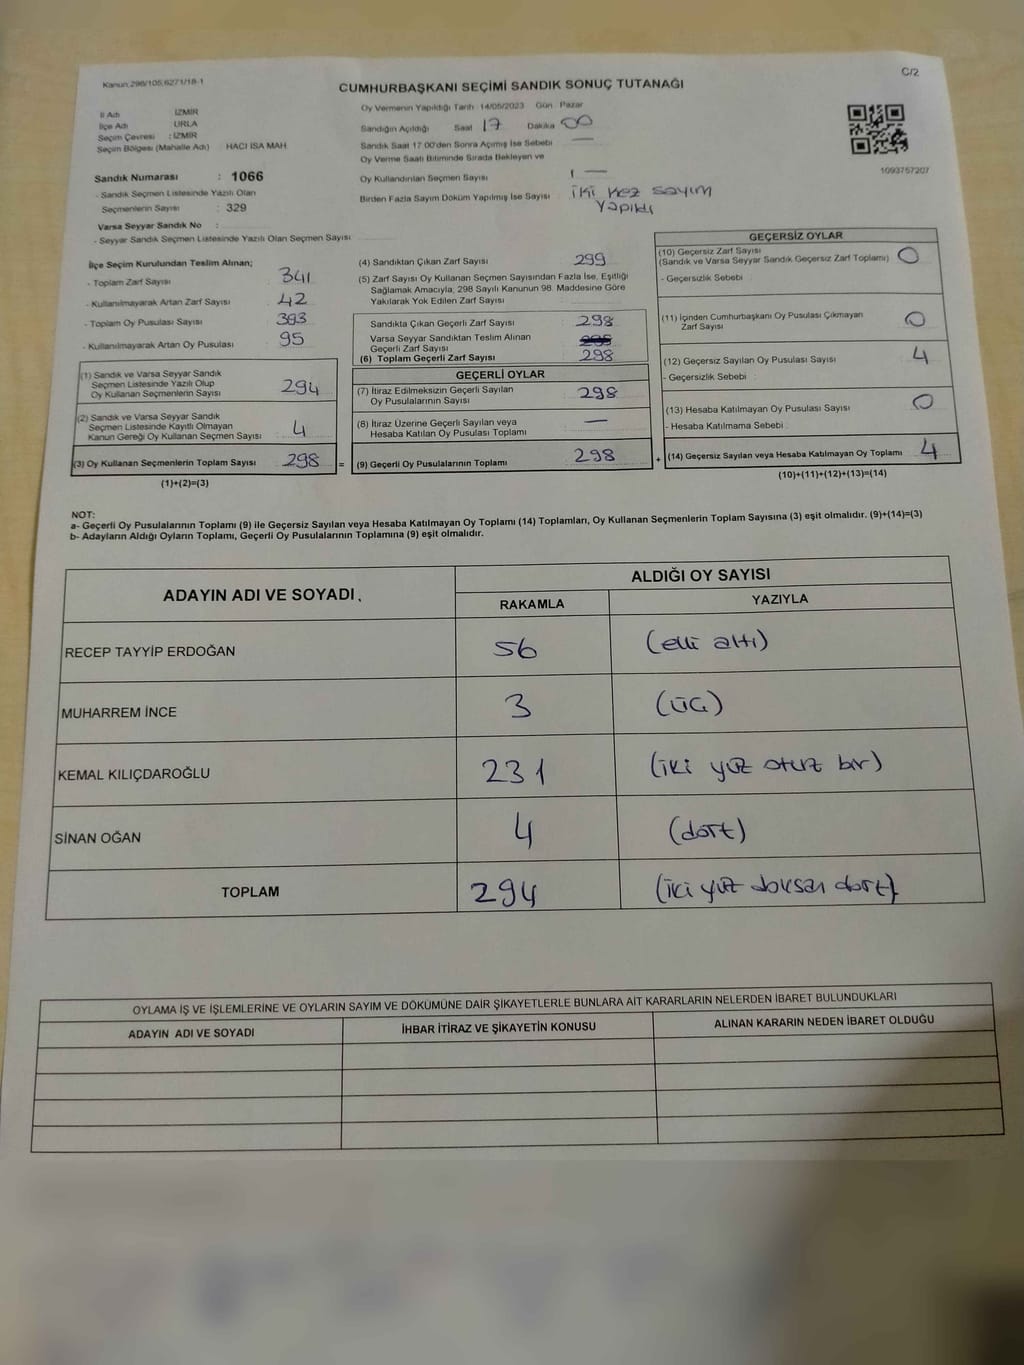 Kanun 298/105,6271/18-1
C/2
CUMHURBAŞKANI SEÇİMİ SANDIK SONUÇ TUTANAĞI
İl Adı İZMİR
İlçe Adı URLA
Seçim Çevresi : İZMİR
Seçim Bölgesi (Mahalle Adı) HACI İSA MAH
Sandık Numarası : 1066
- Sandık Seçmen Listesinde Yazılı Olan
Seçmenlerin Sayısı : 329
Varsa Seyyar Sandık No :
- Seyyar Sandık Seçmen Listesinde Yazılı Olan Seçmen Sayısı
Oy Vermenin Yapıldığı Tarih 14/05/2023 Gün Pazar
Sandığın Açıldığı Saat 17 Dakika 00
Sandık Saat 17 00'den Sonra Açımış İse Sebebi —
Oy Verme Saati Bitiminde Sırada Bekleyen ve
Oy Kullandırılan Seçmen Sayısı : —
Birden Fazla Sayım Döküm Yapılmış İse Sayısı iki kez sayım
yapıldı
1093757207
İlçe Seçim Kurulundan Teslim Alınan;
- Toplam Zarf Sayısı : 341
- Kullanılmayarak Artan Zarf Sayısı : 42
- Toplam Oy Pusulası Sayısı : 393
- Kullanılmayarak Artan Oy Pusulası : 95
(1) Sandık ve Varsa Seyyar Sandık
Seçmen Listesinde Yazılı Olup
Oy Kullanan Seçmenlerin Sayısı : 294
(2) Sandık ve Varsa Seyyar Sandık
Seçmen Listesinde Kayıtlı Olmayan
Kanun Gereği Oy Kullanan Seçmen Sayısı : 4
(3) Oy Kullanan Seçmenlerin Toplam Sayısı 298 =
(1)+(2)=(3)
(4) Sandıktan Çıkan Zarf Sayısı 299
(5) Zarf Sayısı Oy Kullanan Seçmen Sayısından Fazla İse, Eşitliği
Sağlamak Amacıyla, 298 Sayılı Kanunun 98. Maddesine Göre
Yakılarak Yok Edilen Zarf Sayısı :
Sandıkta Çıkan Geçerli Zarf Sayısı : 298
Varsa Seyyar Sandıktan Teslim Alınan
Geçerli Zarf Sayısı
(6) Toplam Geçerli Zarf Sayısı : 298
GEÇERLİ OYLAR
(7) İtiraz Edilmeksizin Geçerli Sayılan
Oy Pusulalarının Sayısı : 298
(8) İtiraz Üzerine Geçerli Sayılan veya
Hesaba Katılan Oy Pusulası Toplamı : —
(9) Geçerli Oy Pusulalarının Toplamı 298 +
GEÇERSİZ OYLAR
(10) Geçersiz Zarf Sayısı
(Sandık ve Varsa Seyyar Sandık Geçersiz Zarf Toplamı) : 0
- Geçersizlik Sebebi :
(11) İçinden Cumhurbaşkanı Oy Pusulası Çıkmayan
Zarf Sayısı : 0
(12) Geçersiz Sayılan Oy Pusulası Sayısı : 4
- Geçersizlik Sebebi :
(13) Hesaba Katılmayan Oy Pusulası Sayısı : 0
- Hesaba Katılmama Sebebi
(14) Geçersiz Sayılan veya Hesaba Katılmayan Oy Toplamı 4
(10)+(11)+(12)+(13)=(14)
NOT:
a- Geçerli Oy Pusulalarının Toplamı (9) ile Geçersiz Sayılan veya Hesaba Katılmayan Oy Toplamı (14) Toplamları, Oy Kullanan Seçmenlerin Toplam Sayısına (3) eşit olmalıdır. (9)+(14)=(3)
b- Adayların Aldığı Oyların Toplamı, Geçerli Oy Pusulalarının Toplamına (9) eşit olmalıdır.
ADAYIN ADI VE SOYADI ALDIĞI OY SAYISI
RAKAMLA YAZIYLA
RECEP TAYYİP ERDOĞAN 56 (elli altı)
MUHARREM İNCE 3 (üç)
KEMAL KILIÇDAROĞLU 231 (iki yüz otuz bir)
SİNAN OĞAN 4 (dört)
TOPLAM 294 (iki yüz doksan dört)
OYLAMA İŞ VE İŞLEMLERİNE VE OYLARIN SAYIM VE DÖKÜMÜNE DAİR ŞİKAYETLERLE BUNLARA AİT KARARLARIN NELERDEN İBARET BULUNDUKLARI
ADAYIN ADI VE SOYADI İHBAR İTİRAZ VE ŞİKAYETİN KONUSU ALINAN KARARIN NEDEN İBARET OLDUĞU